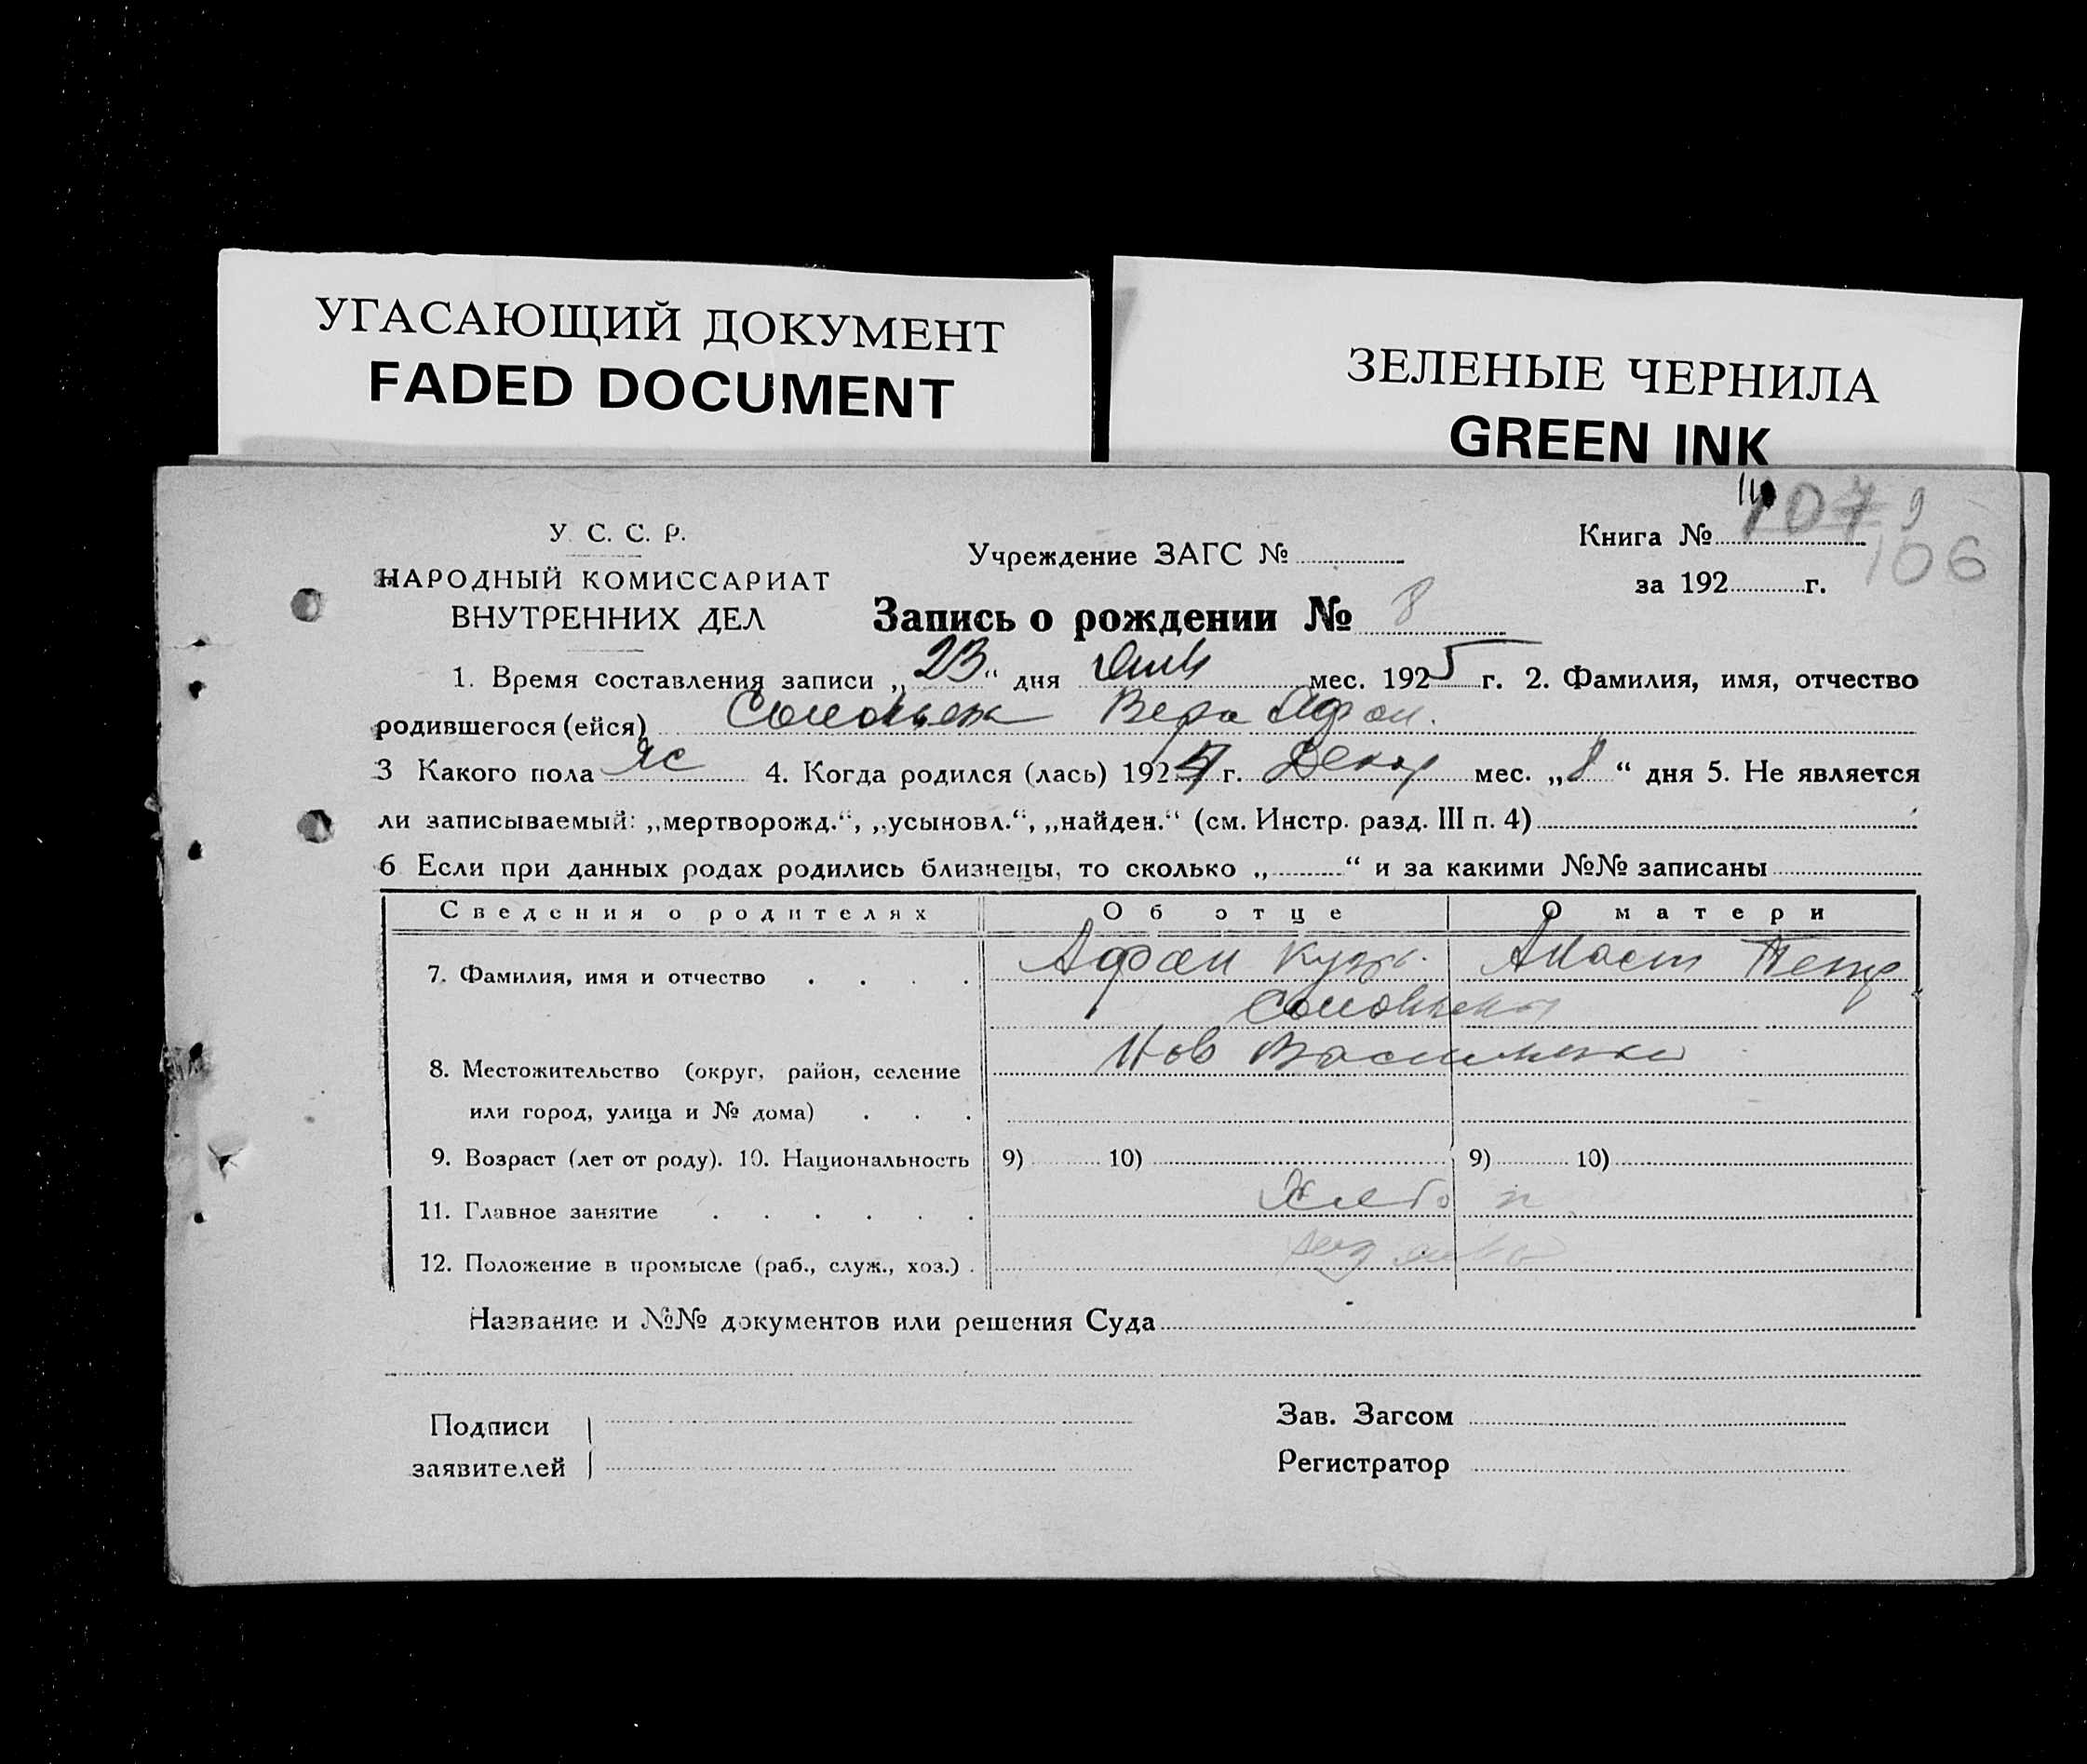 УГАСАЮЩИЙ ДОКУМЕНТ
FADED DOCUMENT
ЗЕЛЕНЫЕ ЧЕРНИЛА
GREEN INK
У. С. С. Р.
НАРОДНЫЙ КОМИССАРИАТ
ВНУТРЕННИХ ДЕЛ
Учреждение ЗАГС №
Книга № 107 9
106
за 192 г.
Запись о рождении № 8
1. Время составления записи „23“ дня мес. 1925 г. 2. Фамилия, имя, отчество
родившегося (ейся) Вера Афан.
3 Какого пола жс 4. Когда родился (лась) 1924 г. Декаб мес. „8“ дня 5. Не является
ли записываемый: „мертворожд.“, „усыновл.“, „найден.“ (см. Инстр. разд. III п. 4)
6 Если при данных родах родились близнецы, то сколько „ “ и за какими №№ записаны
Сведения о родителях Об отце О матери
7. Фамилия, имя и отчество . . . . Афан Кузь. Анаст Петр
Нов Васильевка
8. Местожительство (округ, район, селение
или город, улица и № дома) . . .
9. Возраст (лет от роду). 10. Национальность 9) 10) 9) 10)
11. Главное занятие . . . . . . Хлебо п
12. Положение в промысле (раб., служ., хоз.) .
Название и №№ документов или решения Суда
Подписи
заявителей
Зав. Загсом
Регистратор